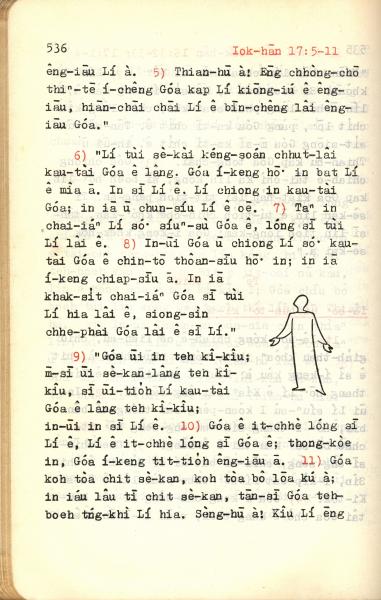 536
Iok-hān 17:5-11
êng-iāu Lí à. 5) Thian-hū à! Eng chhòng-chō
thiⁿ-tē í-chêng Góa kap Lí kiōng-iú ê êng-
iāu, hiān-chāi chāi Lí ê bīn-chêng lâi êng-
iāu Góa."
6) "Lí tùi sè-kài kéng-soán chhut-lâi
kau-tài Góa ê lâng. Góa í-keng hō· in bat Lí
ê miâ ā. In sī Lí ê. Lí chiong in kau-tài
Góa; in iā ū chun-siú Lí ê oē. 7) Taⁿ in
chai-iáⁿ Lí só· siúⁿ-sù Góa ê, lóng sī tùi
Lí lâi ê. 8) In-ūi Góa ū chiong Lí só· kau-
tài Góa ê chin-tō thoân-siū hō· in; in iā
í-keng chiap-siū ā. In iā
khak-si̍t chai-iáⁿ Góa sī tùi
Lí hia lâi ê, siong-sìn
chhe-phài Góa lâi ê sī Lí."
9) "Góa ūi in teh kî-kiû;
m̄-sī ūi sè-kan-lâng teh kî-
kiû, sī ūi-tio̍h Lí kau-tài
Góa ê lâng teh kî-kiû;
in-ūi in sī Lí ê. 10) Góa ê it-chhè lóng sī
Lí ê, Lí ê it-chhè lóng sī Góa ê; thong-kòe
in, Góa í-keng tit-tio̍h êng-iāu ā. 11) Góa
koh tòa chit sè-kan, koh tòa bô lōa kú à;
in iáu lâu tī chit sè-kan, tān-sī Góa teh-
boeh tńg-khì Lí hia. Sèng-hū à! Kiû Lí ēng